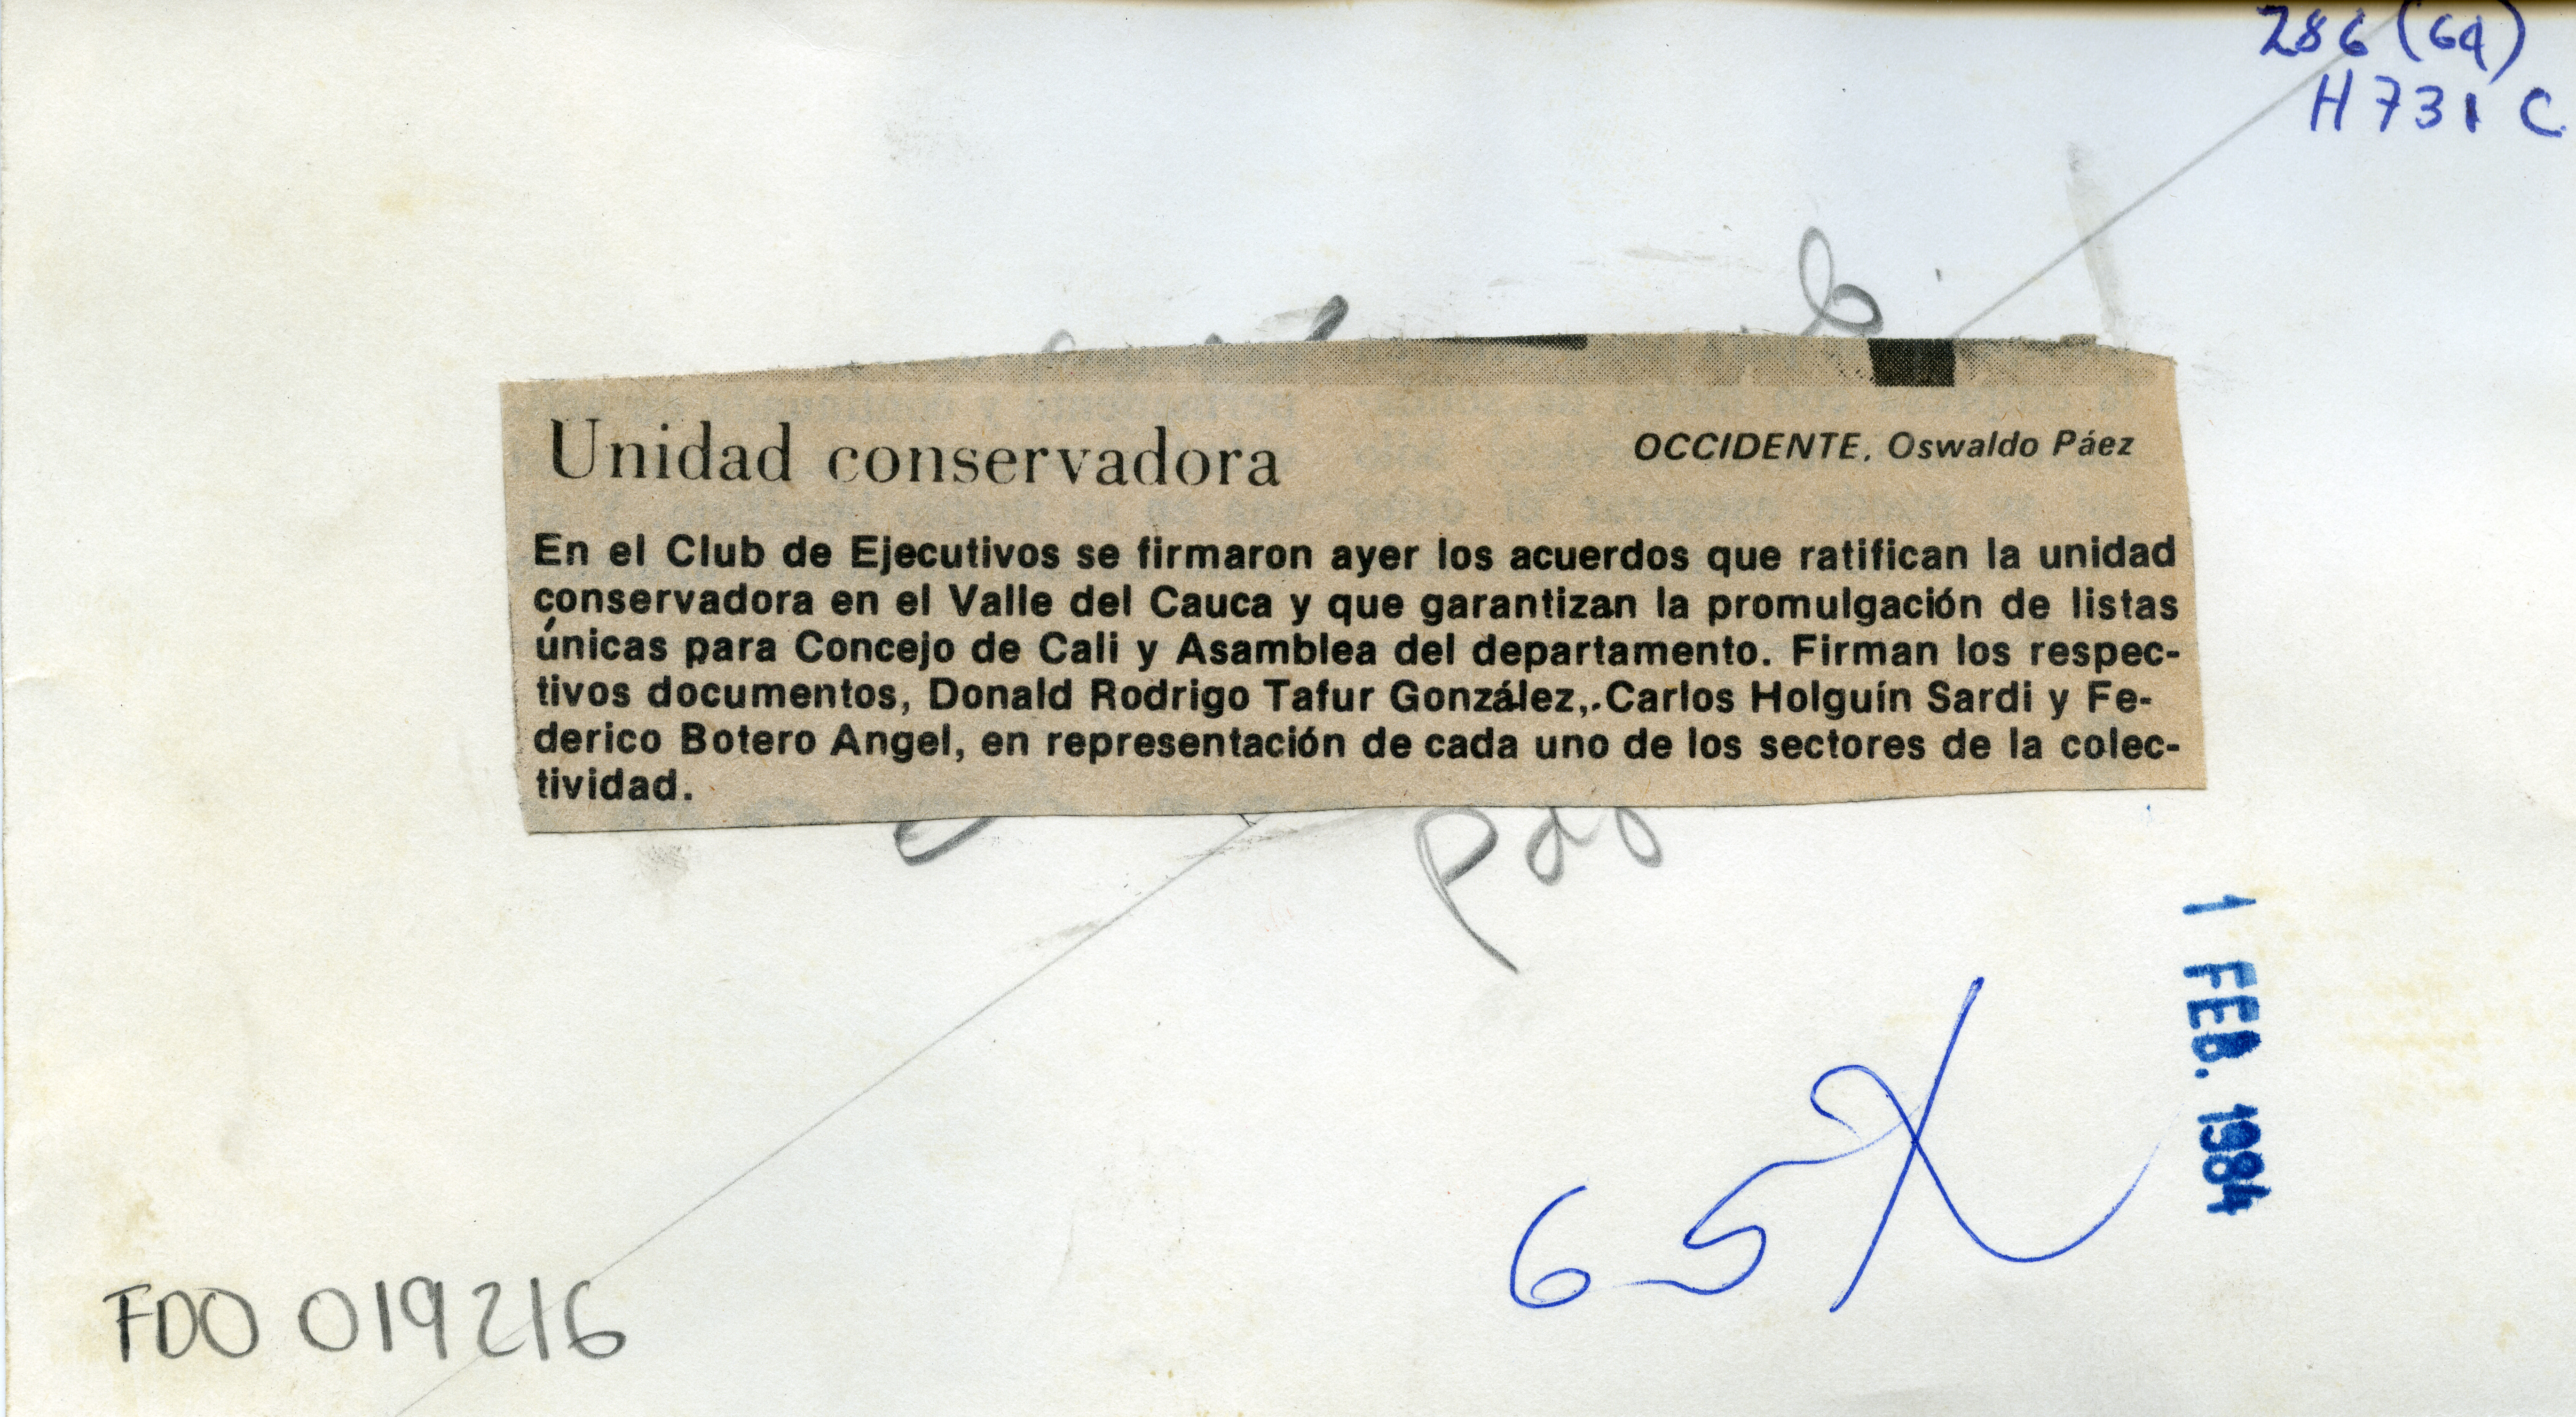 286 (64)
H 731 C
Unidad conservadora
OCCIDENTE, Oswaldo Páez
En el Club de Ejecutivos se firmaron ayer los acuerdos que ratifican la unidad
conservadora en el Valle del Cauca y que garantizan la promulgación de listas
únicas para Concejo de Cali y Asamblea del departamento. Firman los respec-
tivos documentos, Donald Rodrigo Tafur González,.Carlos Holguín Sardi y Fe-
derico Botero Angel, en representación de cada uno de los sectores de la colec-
tividad.
1 FEB. 1984
65
FDO 019216